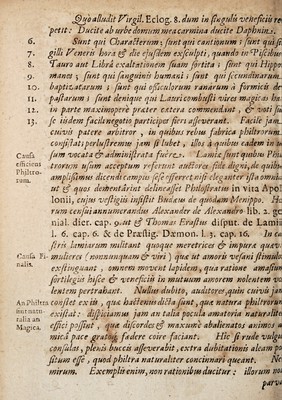 Quo alludit Virgil. Eclog. 8. dum in singulis veneficii re-
petit: Ducite ab urbe domum mea carmina ducite Daphnin.
6. Sunt qui Characterum; sunt qui cantionum; sunt qui si-
7. gilli Veneris hora & die ejusdem exsculpti, quando in Piscibus
8. Tauro aut Libra exaltationem suam sortita; sunt qui Hippo
9. manes; sunt qui sanguinis humani; sunt qui secundinarum
10. baptizatarum; sunt qui ossiculorum ranarum à formicis de-
11. pastarum; sunt denique qui Lauri combusti vires magicas ha-
12. in parte maximopere prater cetera commendent, & voti su
13. se iisdem facil negotio participes fieri asseverant. Facile jam
cuivis patere arbitror, in quibus rebus fabrica philtrorum
consistat: perlustremus jam si lubet, illos à quibus eadem in u-
Causa efficiens Philtro- rum.
sum vocata & administrata fuere. Lamic sunt quibus Phil
trorum usum acceptum referunt auctores, ille digni, de quibus
amplissimus dicendi campus sese offerret nisi eleganter ista omnia
ut & quos dementârint delineasset Philostratus in vita Apol
lonii, cujus vestigiis insistit Budæus de quodam Menippo. Ho
rum censui annumerandus Alexander de Alexandro lib. 2. ge
nial. dier. cap. 9. ut & Thomas Erastus disput. de Lamii
l. 6. cap. 6. & de Præstig. Dæmon. l. 3. cap. 16. In ca
stris lamiarum militant quoque meretrices & impura quævi
Causa Fi- nalis.
mulieres (nonnunquam & viri) quæ ut amoris vesani stimulos
exstinguant, omnem movent lapidem, qua ratione amasium
sortilegiis hisce & veneficiis in mutuum amorem nolentem vo
lentem pertrahant. Nullus dubito, auditores, quin cuivis jam
An Philtra sint natu- ralia an Magica.
constet ex iis, quæ hactenus dicta sunt, quæ natura philtrorum
existat: disspiciamus jam an talia pocula amatoria naturaliter
effici possint, quæ discordes & maxumè abalienatos animos a
mica pace gratoq; fœdere coire faciant. Hic si rude vulgus
consulas, plenis buccis asseverabit, extra dubitationis aleam po
situm esse, quod philtra naturaliter concinnari queant. Ne
mirum. Exemplis enim, non rationibus ducitur: illorum non
parva